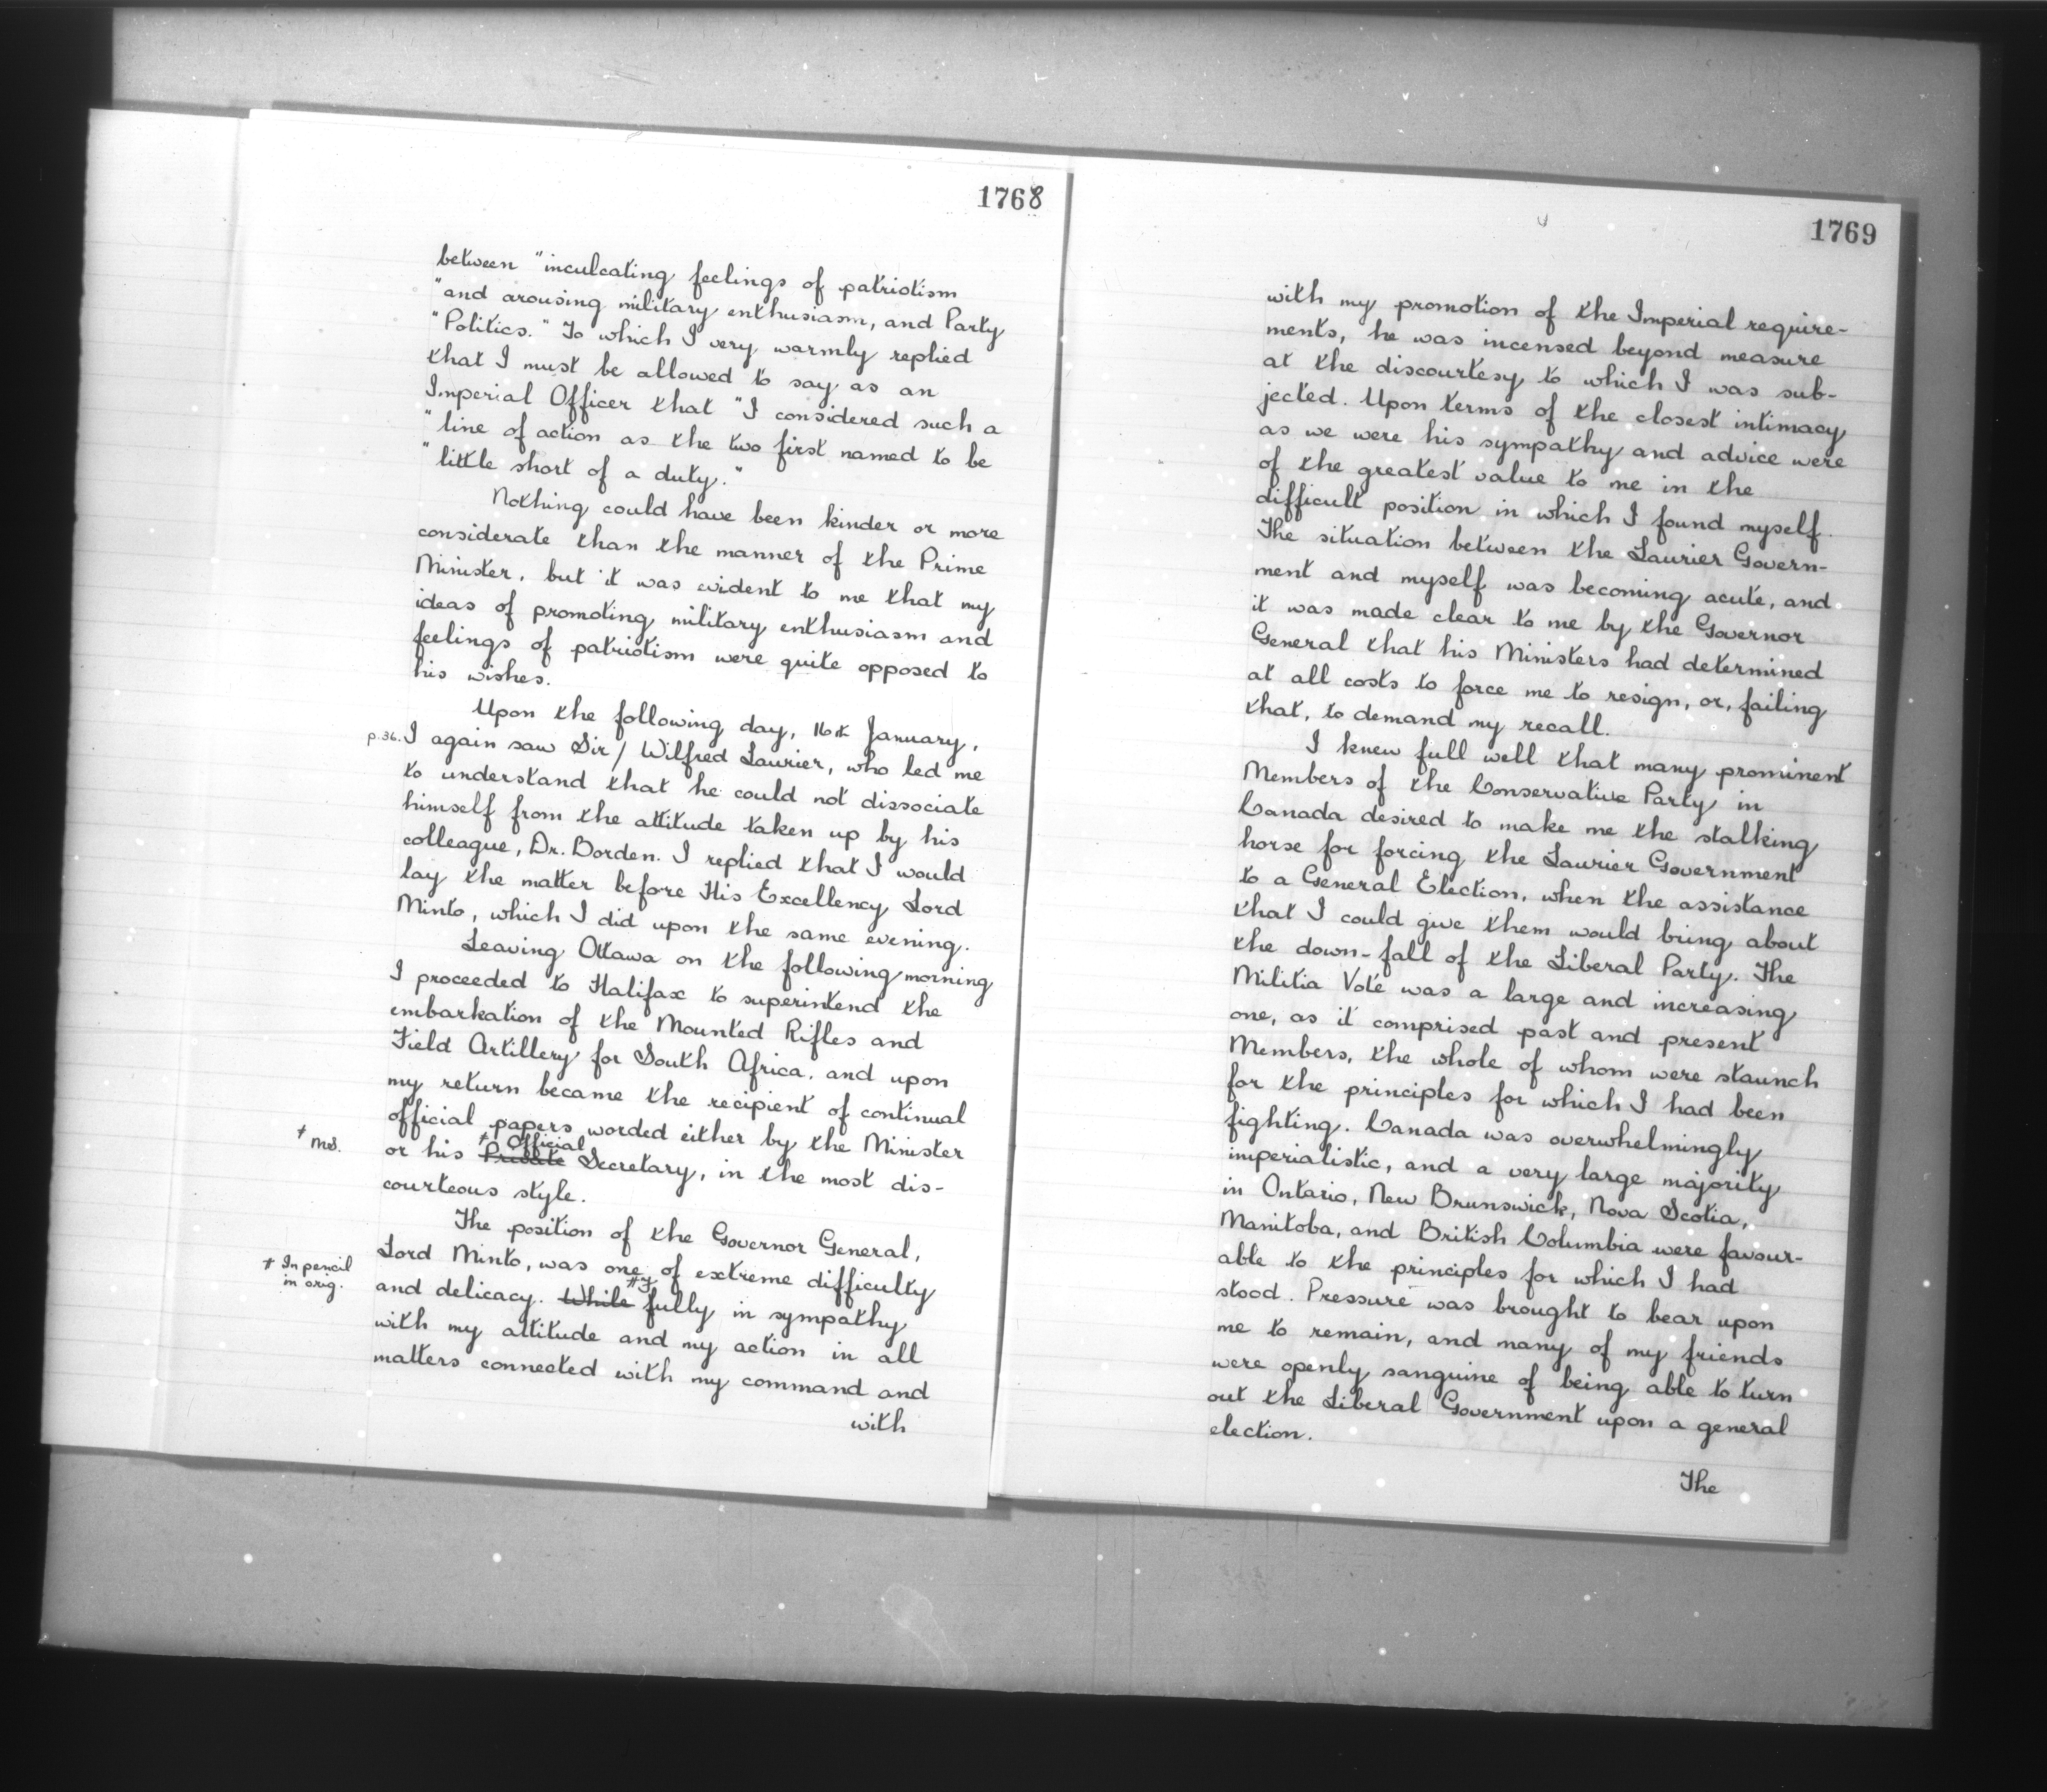 1768
between "inculcating feelings of patriotism
"and arousing military enthusiasm, and Party
"Politics." To which I very warmly replied
that I must be allowed to say as an
Imperial Officer that "I considered such a
"line of action as the two first named to be
"little short of a duty."
Nothing could have been kinder or more
considerate than the manner of the Prime
Minister, but it was evident to me that my
ideas of promoting military enthusiasm and
feelings of patriotism were quite opposed to
his wishes.
Upon the following day, 16th January,
p.36. I again saw Sir / Wilfred Laurier, who led me
to understand that he could not dissociate
himself from the attitude taken up by his
colleague, Dr. Borden. I replied that I would
lay the matter before His Excellency Lord
Minto, which I did upon the same evening.
Leaving Ottawa on the following morning
I proceeded to Halifax to superintend the
embarkation of the Mounted Rifles and
Field Artillery for South Africa, and upon
my return became the recipient of continual
official papers worded either by the Minister
≠ Official
≠ MS. or his Private Secretary, in the most dis-
courteous style.
The position of the Governor General,
Lord Minto, was one of extreme difficulty
# In pencil in orig.
# F
and delicacy. While fully in sympathy
with my attitude and my action in all
matters connected with my command and
with
1769
with my promotion of the Imperial require-
ments, he was incensed beyond measure
at the discourtesy to which I was sub-
jected. Upon terms of the closest intimacy
as we were his sympathy and advice were
of the greatest value to me in the
difficult position in which I found myself.
The situation between the Laurier Govern-
ment and myself was becoming acute, and
it was made clear to me by the Governor
General that his Ministers had determined
at all costs to force me to resign, or, failing
that, to demand my recall.
I knew full well that many prominent
Members of the Conservative Party in
Canada desired to make me the stalking
horse for forcing the Laurier Government
to a General Election, when the assistance
that I could give them would bring about
the down-fall of the Liberal Party. The
Militia Vote was a large and increasing
one, as it comprised past and present
Members, the whole of whom were staunch
for the principles for which I had been
fighting. Canada was overwhelmingly
imperialistic, and a very large majority
in Ontario, New Brunswick, Nova Scotia,
Manitoba, and British Columbia were favour-
able to the principles for which I had
stood. Pressure was brought to bear upon
me to remain, and many of my friends
were openly sanguine of being able to turn
out the Liberal Government upon a general
election.
The